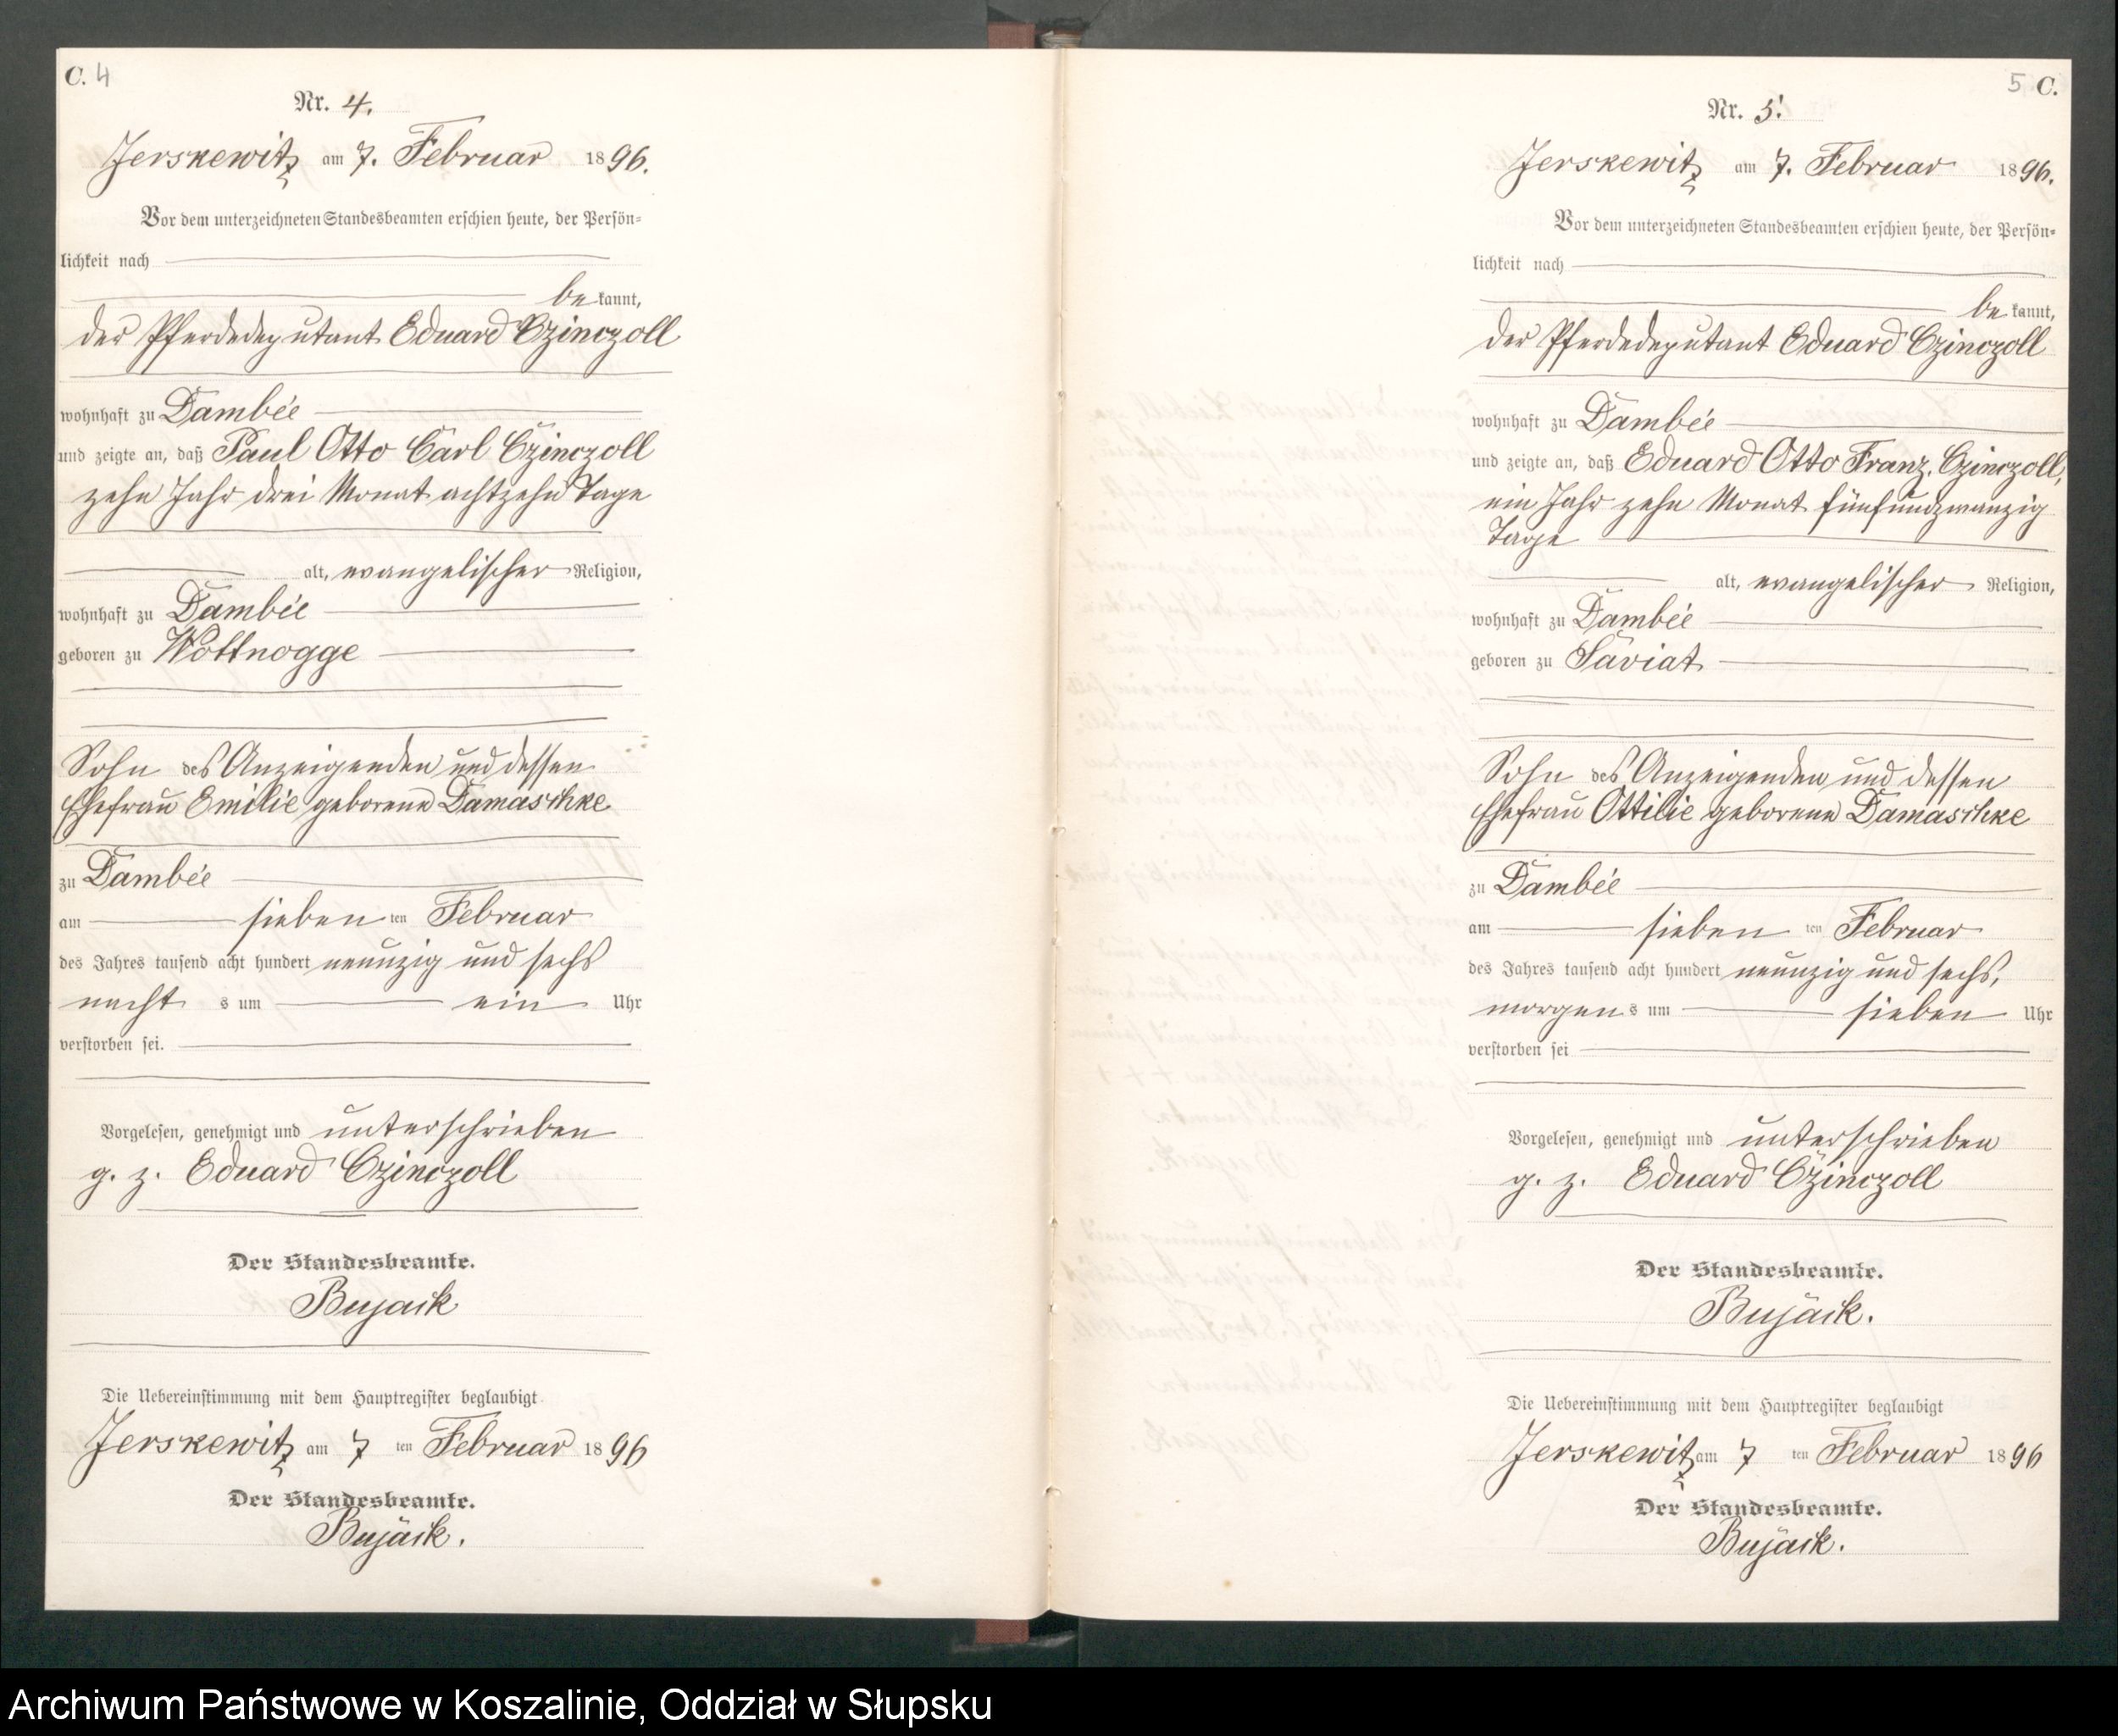 C. 4
Nr. 4.
Jerskewitz am 7. Februar 1896.
Vor dem unterzeichneten Standesbeamten erschien heute, der Persön-
lichkeit nach
be kannt,
der Pferdedeputant Eduard Czinczoll
wohnhaft zu Dambée
und zeigte an, daß Paul Otto Carl Czinczoll
zehn Jahr drei Monat achtzehn Tage
alt, evangelischer Religion,
wohnhaft zu Dambée
geboren zu Wottnogge
Sohn des Anzeigenden und dessen
Ehefrau Emilie geborene Damaschke
zu Dambée
am sieben ten Februar
des Jahres tausend acht hundert neunzig und sechs
nacht s um ein Uhr
verstorben sei.
Vorgelesen, genehmigt und unterschrieben
g. z. Eduard Czinczoll
Der Standesbeamte.
Bujack
Die Uebereinstimmung mit dem Hauptregister beglaubigt
Jerskewitz am 7 ten Februar 1896
Der Standesbeamte.
Bujack.
5 C.
Nr. 5.
Jerskewitz am 7. Februar 1896.
Vor dem unterzeichneten Standesbeamten erschien heute, der Persön-
lichkeit nach
be kannt,
der Pferdedeputant Eduard Czinczoll
wohnhaft zu Dambée
und zeigte an, daß Eduard Otto Franz Czinczoll,
ein Jahr zehn Monat fünfundzwanzig
Tage
alt, evangelischer Religion,
wohnhaft zu Dambée
geboren zu Saviat
Sohn des Anzeigenden und dessen
Ehefrau Ottilie geborene Damaschke
zu Dambée
am sieben ten Februar
des Jahres tausend acht hundert neunzig und sechs,
morgen s um sieben Uhr
verstorben sei
Vorgelesen, genehmigt und unterschrieben
g. z. Eduard Czinczoll
Der Standesbeamte.
Bujack.
Die Uebereinstimmung mit dem Hauptregister beglaubigt
Jerskewitz am 7 ten Februar 1896
Der Standesbeamte.
Bujack.
Archiwum Państwowe w Koszalinie, Oddział w Słupsku